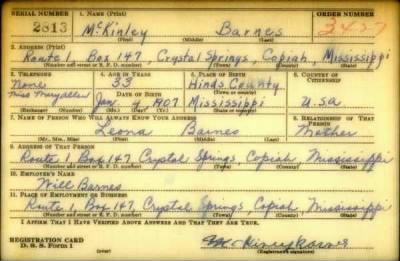 SERIAL NUMBER 1. NAME (Print) ORDER NUMBER
2813 McKinley Barnes 3427
(First) (Middle) (Last)
2. ADDRESS (Print)
Route 1, Box 147, Crystal Springs, Copiah, Mississippi
(Number and street or R. F. D. number) (Town) (County) (State)
3. TELEPHONE 4. AGE IN YEARS 5. PLACE OF BIRTH 6. COUNTRY OF CITIZENSHIP
None 33 Hinds County
DATE OF BIRTH (Town or county)
Jan. 4 1907 Mississippi U.S.a
(Exchange) (Number) (Mo.) (Day) (Yr.) (State or country)
7. NAME OF PERSON WHO WILL ALWAYS KNOW YOUR ADDRESS 8. RELATIONSHIP OF THAT PERSON
Leona Barnes Mother
(Mr., Mrs., Miss) (First) (Middle) (Last)
9. ADDRESS OF THAT PERSON
Route 1, Box 147, Crystal Springs, Copiah, Mississippi
(Number and street or R. F. D. number) (Town) (County) (State)
10. EMPLOYER'S NAME
Will Barnes
11. PLACE OF EMPLOYMENT OR BUSINESS
Route 1, Box 147, Crystal Springs, Copiah, Mississippi
(Number and street or R. F. D. number) (Town) (County) (State)
I AFFIRM THAT I HAVE VERIFIED ABOVE ANSWERS AND THAT THEY ARE TRUE.
REGISTRATION CARD
D. S. S. Form 1 (over) (Registrant's signature)